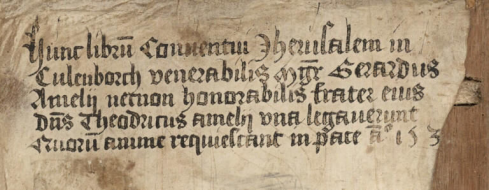 Hunc librū Conventui Jherusalem in
Culenborch venerabilis mgr Gerardus
Amelij necnon honorabilis frater eius
dn̄s Theodricus amelij una legaverunt
Quorū anime requiescant in pace aº 153